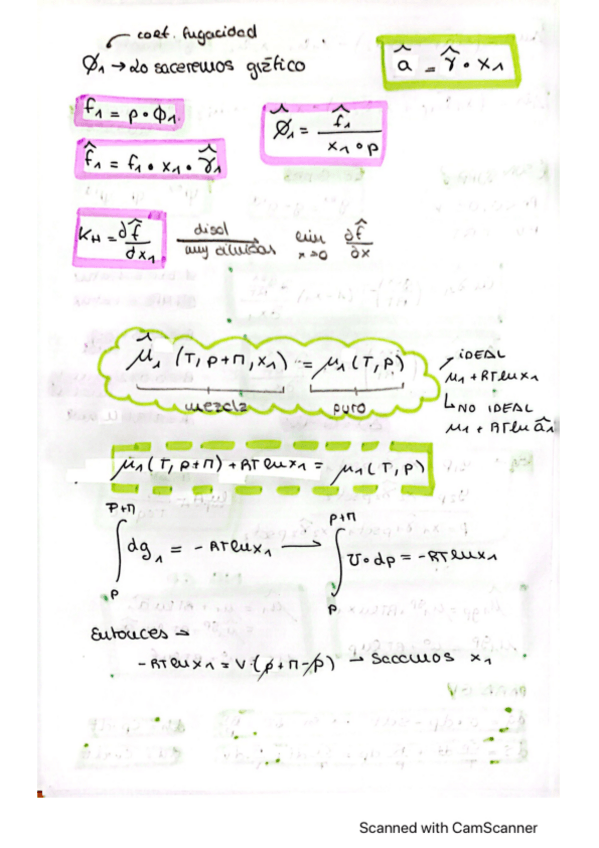 coef. fugacidad
Ø₁ → lo sacaremos gráfico
â = γ̂ · x₁
f₁ = p · Φ₁
Ø̂₁ = f̂₁ / x₁ · p
f̂₁ = f₁ · x₁ · γ̂₁
K_H = ∂f̂ / ∂x₁ disol muy diluidas lim x→0 ∂f̂ / ∂x
μ̂₁ (T, p+π, x₁) = μ₁ (T, p)
mezcla puro
→ IDEAL
μ₁ + RT ln x₁
↳ NO IDEAL
μ₁ + RT ln â₁
μ₁ (T, p+π) + RT ln x₁ = μ₁ (T, p)
∫ₚᵖ⁺ᴨ dg₁ = - RT ln x₁ → ∫ₚᵖ⁺ᴨ v · dp = - RT ln x₁
Entonces →
- RT ln x₁ = V · (p + π - p) → sacamos x₁
Scanned with CamScanner